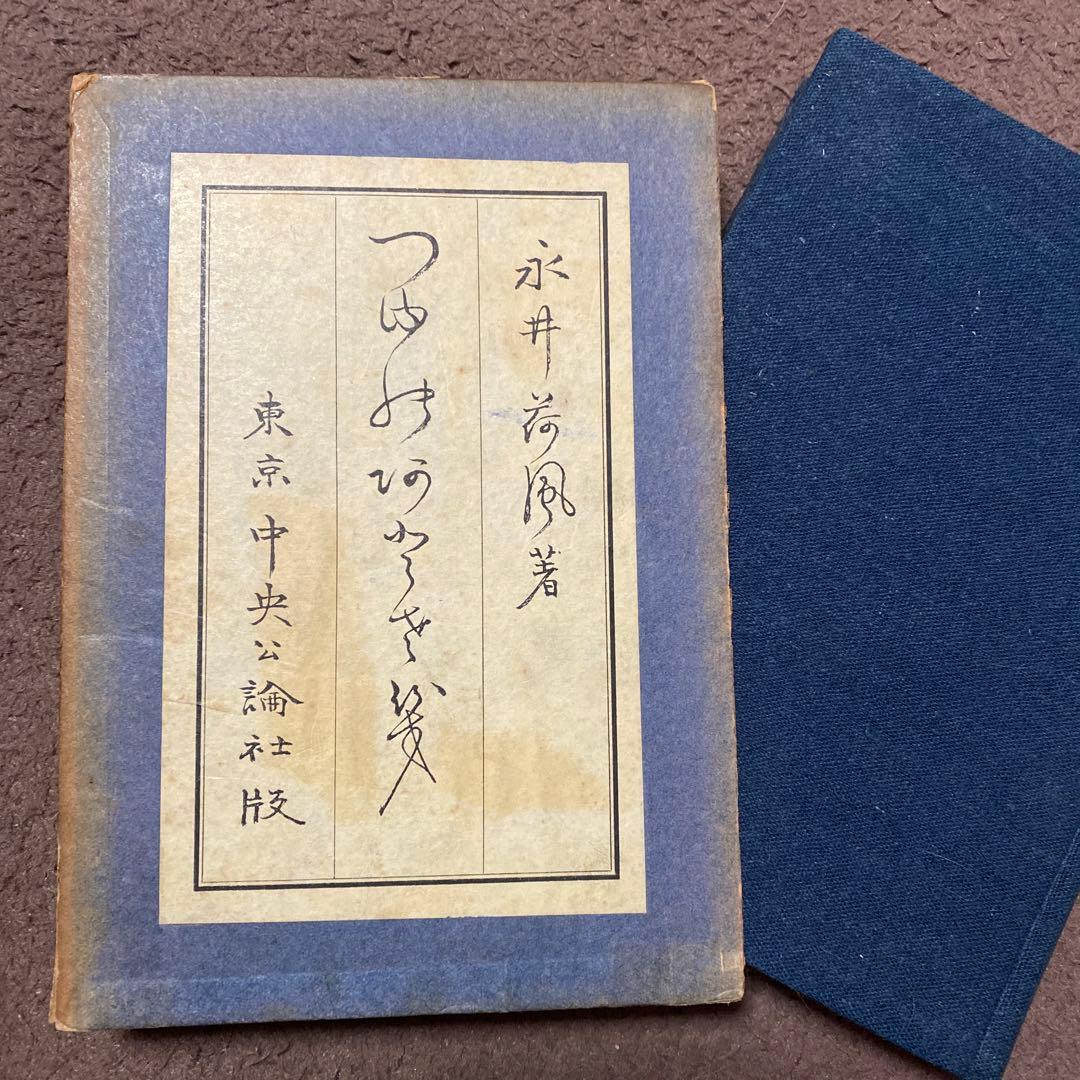 永井荷風著
つゆ乃阿と左幾
東京 中央公論社版